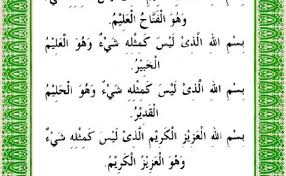 وَهُوَ الْفَتَّاحُ الْعَلِيْمُ.
بِسْمِ اللهِ الَّذِىْ لَيْسَ كَمِثْلِهِ شَىْءٌ وَهُوَ الْعَلِيْمُ
الْخَبِيْرُ.
بِسْمِ اللهِ الَّذِىْ لَيْسَ كَمِثْلِهِ شَىْءٌ وَهُوَ الْحَلِيْمُ
الْقَدِيْرُ.
بِسْمِ اللهِ الْعَزِيْزِ الْكَرِيْمِ الَّذِىْ لَيْسَ كَمِثْلِهِ شَىْءٌ
وَهُوَ الْعَزِيْزُ الْكَرِيْمُ.